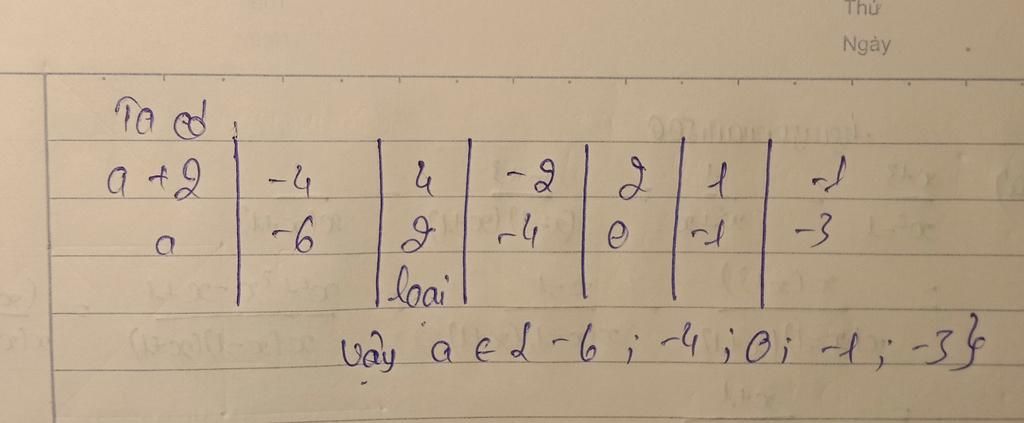 Thứ
Ngày
Ta có
a + 2 | -4 | 4 | -2 | 2 | 1 | -1
a | -6 | 2 | -4 | 0 | -1 | -3
loại
Vậy a ∈ { -6 ; -4 ; 0 ; -1 ; -3 }